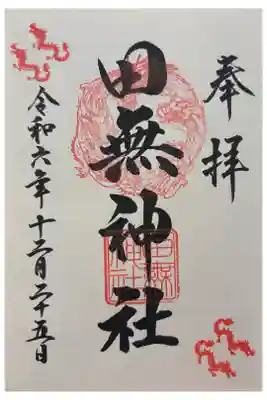 奉拝
田無神社
田無神社
令和六年十二月二十五日